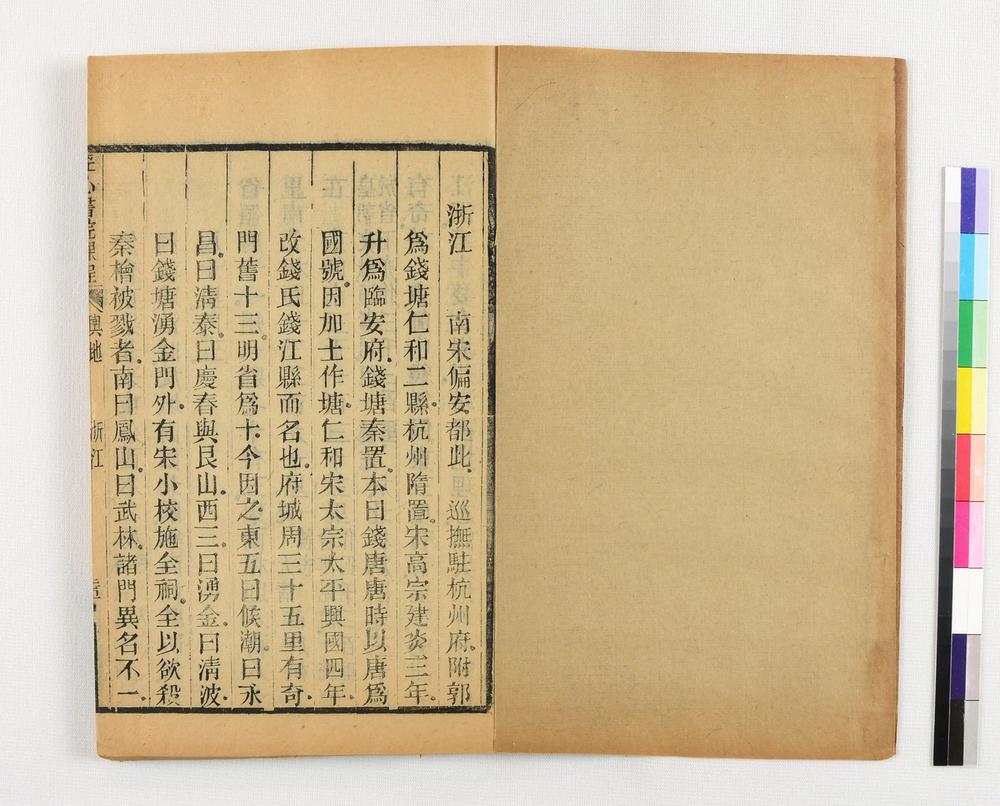 浙江　南宋偏安都此巡撫駐杭州府附郭
爲錢塘仁和二縣杭州隋置宋高宗建炎三年
升爲臨安府錢塘秦置本曰錢唐唐時以唐爲
國號因加土作塘仁和宋太宗太平興國四年
改錢氏錢江縣而名也府城周三十五里有奇
門舊十三明省爲十今因之東五曰候潮曰永
昌曰淸泰曰慶春與艮山西三曰湧金曰淸波
曰錢塘湧金門外有宋小校施全祠全以欲殺
秦檜被戮者南曰鳳山曰武林諸門異名不一
書院課程　輿地　浙江